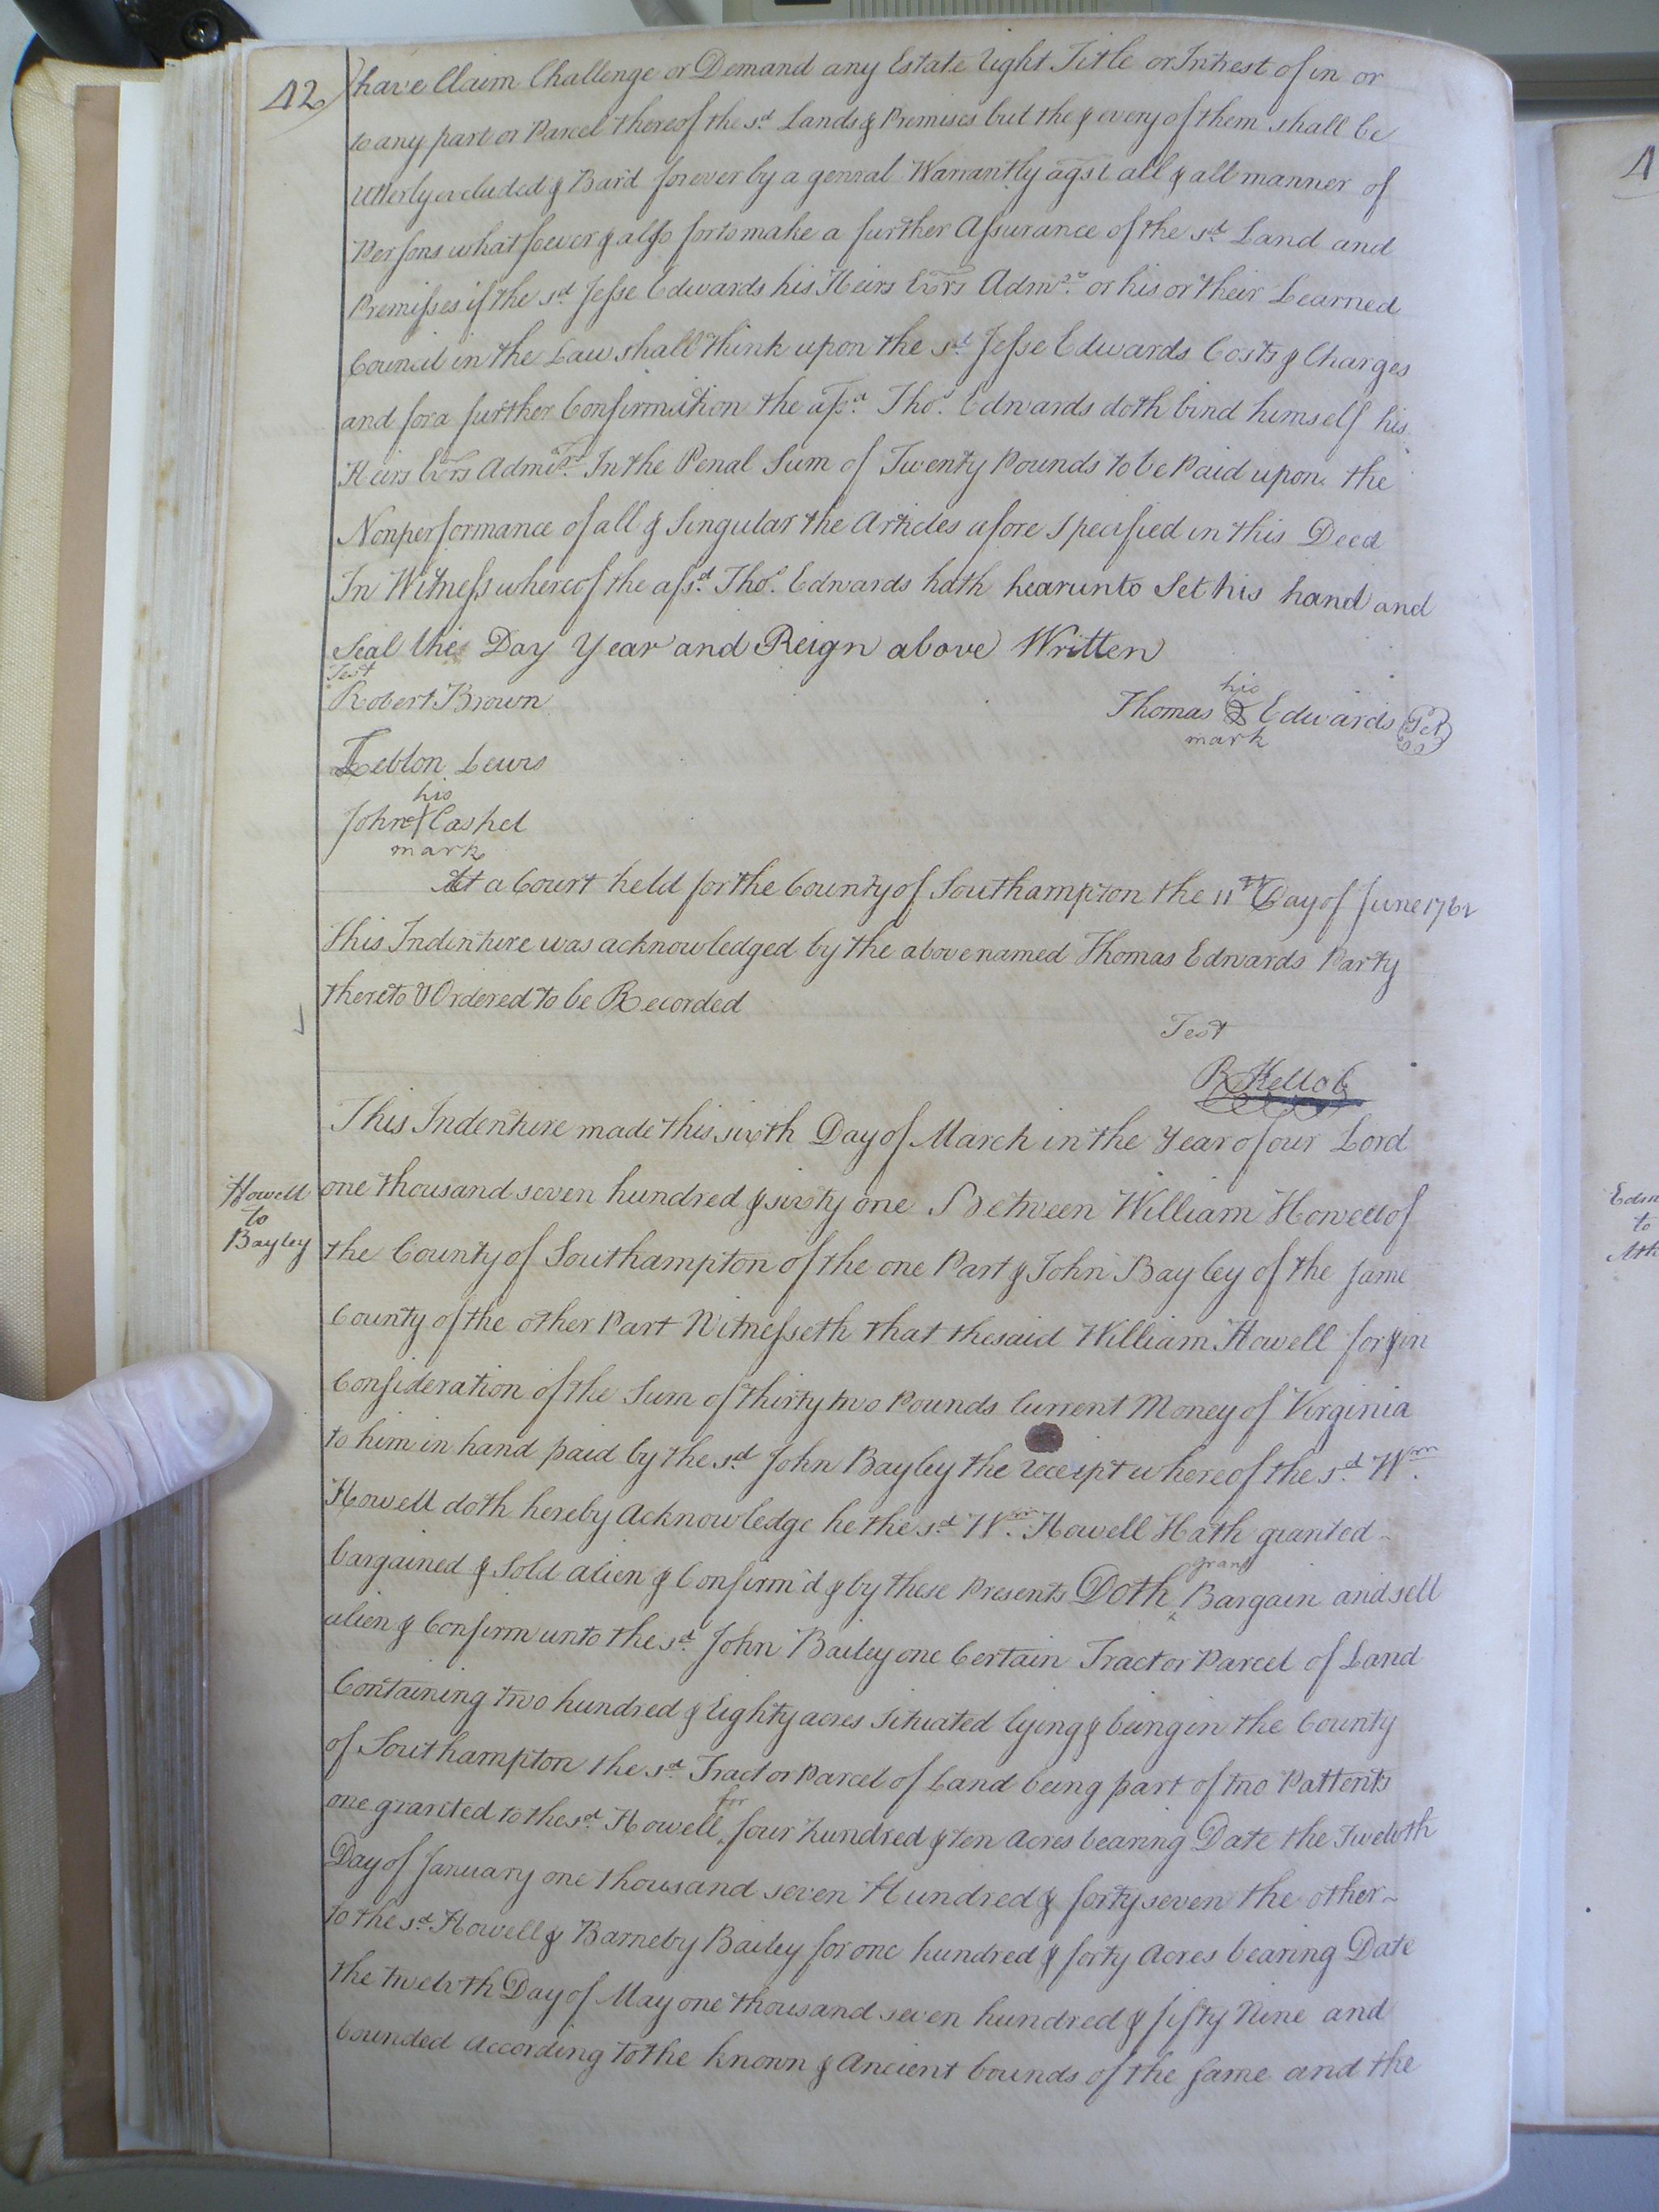 42
have Claim Challenge or Demand any Estate right Title or Intrest of in or
to any part or Parcel thereof the sd. Lands & Premises but the & every of them shall be
Utterly excluded & Bar'd forever by a genral Warrantly agst all & all manner of
Persons whatsoever & also for to make a further Assurance of the sd. Land and
Premisses if the sd. Jesse Edwards his Heirs Exrs Admrs. or his or their Learned
Council in the Law shall think upon the sd. Jesse Edwards Costs & Charges
and for a further Confirmation the afsd. Thos. Edwards doth bind himself his
Heirs Exrs Admrs. In the Penal Sum of Twenty Pounds to be Paid upon the
Nonperformance of all & Singular the Articles afore Specified in this Deed
In Witness whereof the afsd. Thos. Edwards hath hearunto Set his hand and
Seal the Day Year and Reign above Written
Test
Robert Brown
his
Thomas Edwards
mark
Lewis
his
John Cashel
mark
At a Court held for the County of Southampton the 11th Day of June 1762
This Indenture was acknowledged by the above named Thomas Edwards Party
thereto & Ordered to be Recorded
Test
R Kello C
Howell
to
Bayley
This Indenture made this sixth Day of March in the Year of our Lord
one thousand seven hundred & sixty one Between William Howell of
the County of Southampton of the one Part & John Bayley of the same
County of the other Part Witnesseth that the said William Howell for & in
Consideration of the Sum of thirty two Pounds Current Money of Virginia
to him in hand paid by the sd. John Bayley the receipt whereof the sd. Wm.
Howell doth hereby Acknowledge he the sd. Wm. Howell Hath granted
bargained & Sold alien & Confirm'd & by these Presents Doth grant Bargain and sell
alien & Confirm unto the sd. John Bailey one Certain Tract or Parcel of Land
Containing two hundred & Eighty acres situated lying & being in the County
of Southampton the sd. Tract or Parcel of Land being part of two Pattents
one granted to the sd. Howell for four hundred & ten Acres bearing Date the Twelvth
Day of January one thousand seven Hundred & forty seven the other
to the sd. Howell & Barneby Bailey for one hundred & forty Acres bearing Date
the twelvth Day of May one thousand seven hundred & fifty Nine and
bounded according to the known & Ancient bounds of the same and the
to